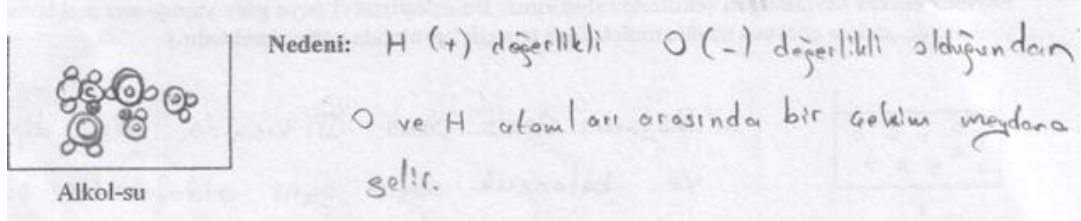 Nedeni: H (+) değerlikli O (-) değerlikli olduğundan
O ve H atomları arasında bir çekim meydana
gelir.
Alkol-su